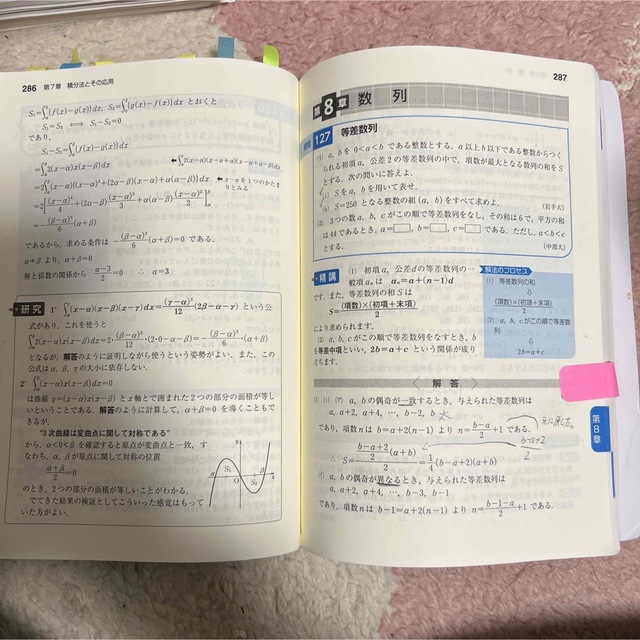 286 第7章 積分法とその応用
S₁=∫{f(x)-g(x)}dx, S₂=∫{g(x)-f(x)}dx とおくと
S₁=S₂ ⟺ S₁-S₂=0
であり,
S₁-S₂=∫{f(x)-g(x)}dx
=∫2(x-α)x(x-β)dx
であるから, 求める条件は -(β-α)³/6(α+β)=0 である.
α≠β より, α+β=0
解と係数の関係から (a-3)/2=0 ∴ a=3
研究 1° ∫(x-α)(x-β)(x-γ)dx=(γ-α)³/12(2β-α-γ) という公
式があり, これを使うと
となるが, 解答のように証明しながら使うという姿勢がよい. また, この
公式は α, β, γ の大小に依存しない.
2° ∫(x-α)x(x-β)dx=0
は曲線 y=(x-α)x(x-β) と x軸とで囲まれた2つの部分の面積が等し
いということである. 解答のように計算して, α+β=0 を導くこともで
きるが,
“3次曲線は変曲点に関して対称である”
から, α<0<β を確認すると原点が変曲点と一致, す
なわち, α, β が原点に関して対称の位置
(α+β)/2=0
のとき, 2つの部分の面積が等しいことがわかる.
でてきた結果の検証としてこういった感覚はもって
いた方がよい.
y
S₁
α
O
S₂
β
x
287
第8章 数列
127 等差数列
(1) a, b を 0<a<b である整数とする. a 以上 b 以下である整数からつく
られる初項 a, 公差2の等差数列の中で, 項数が最大となる数列の和をS
とする. 次の問いに答えよ.
S を a, b を用いて表せ.
S=250 となる整数の組 (a, b) をすべて求めよ. (岩手大)
(2) 3つの数 a, b, c がこの順で等差数列をなし, その和は6, 平方の和
は44であるとき, a=□, b=□, c=□ である. ただし, a<b<c
とする. (中部大)
精講 (1) 初項 a, 公差dの等差数列の一
般項 aₙ は aₙ=a+(n-1)d
です. また, 等差数列の和 S は
S=(項数)×(初項+末項)/2
により求められます.
(2) a, b, c がこの順で等差数列をなすとき, b
を等差中項といい, 2b=a+c という関係が成り
立ちます.
解法のプロセス
(1) 等差数列の和
⇩
(項数)×(初項+末項)/2
(2) a, b, c がこの順で等差数
列
⇩
2b=a+c
解答
(1) (i) (ア) a, b の偶奇が一致するとき, 与えられた等差数列は
a, a+2, a+4, …, b-2, b
であり, 項数 n は b=a+2(n-1) より n=(b-a)/2+1 である.
(b-a+2)/2
∴ S=((b-a+2)/2 (a+b))/2=1/4(b-a+2)(a+b)
(イ) a, b の偶奇が異なるとき, 与えられた等差数列は
a, a+2, a+4, …, b-3, b-1
であり, 項数 n は b-1=a+2(n-1) より n=(b-1-a)/2+1 である.
第8章